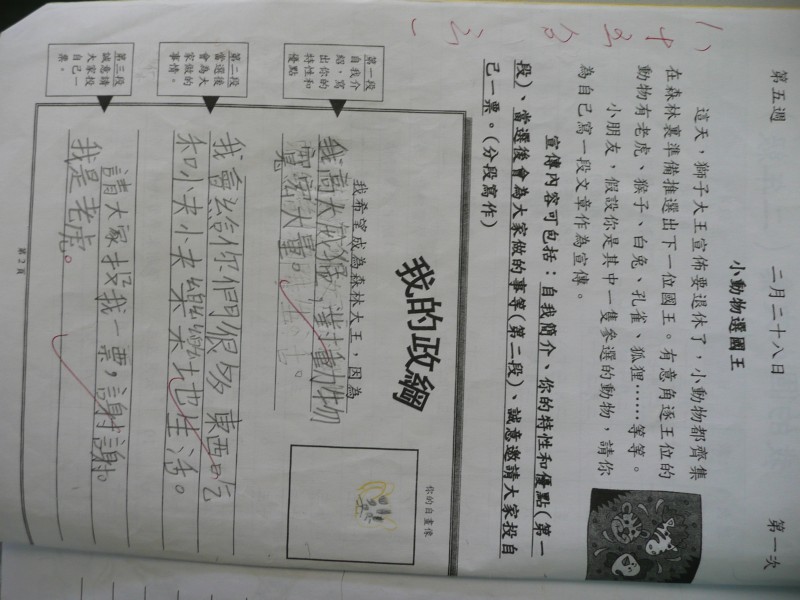 第五週 二月二十八日 第一次
小動物選國王
這天,獅子大王宣佈要退休了,小動物都齊集
在森林裏準備推選出下一位國王。有意角逐王位的
動物有老虎、猴子、白兔、孔雀、狐狸……等等。
小朋友,假設你是其中一隻參選的動物,請你
為自己寫一段文章作為宣傳。
宣傳內容可包括:自我簡介、你的特性和優點(第一
段)、當選後會為大家做的事等(第二段)、誠意邀請大家投自
己一票。(分段寫作)
我的政綱
你的自畫像
第一段
自我介
紹,寫
出你的
特性和
優點
我希望成為森林大王,因為
我高大威猛,對動物
寬宏大量。
第二段
當選後
會為大
家做的
事情。
我會給你們很多東西吃
和小夫小夫樂樂地生活。
第三段
誠意請
大家投
自己一
票。
請大家投我一票,謝謝。
我是老虎。
第2頁